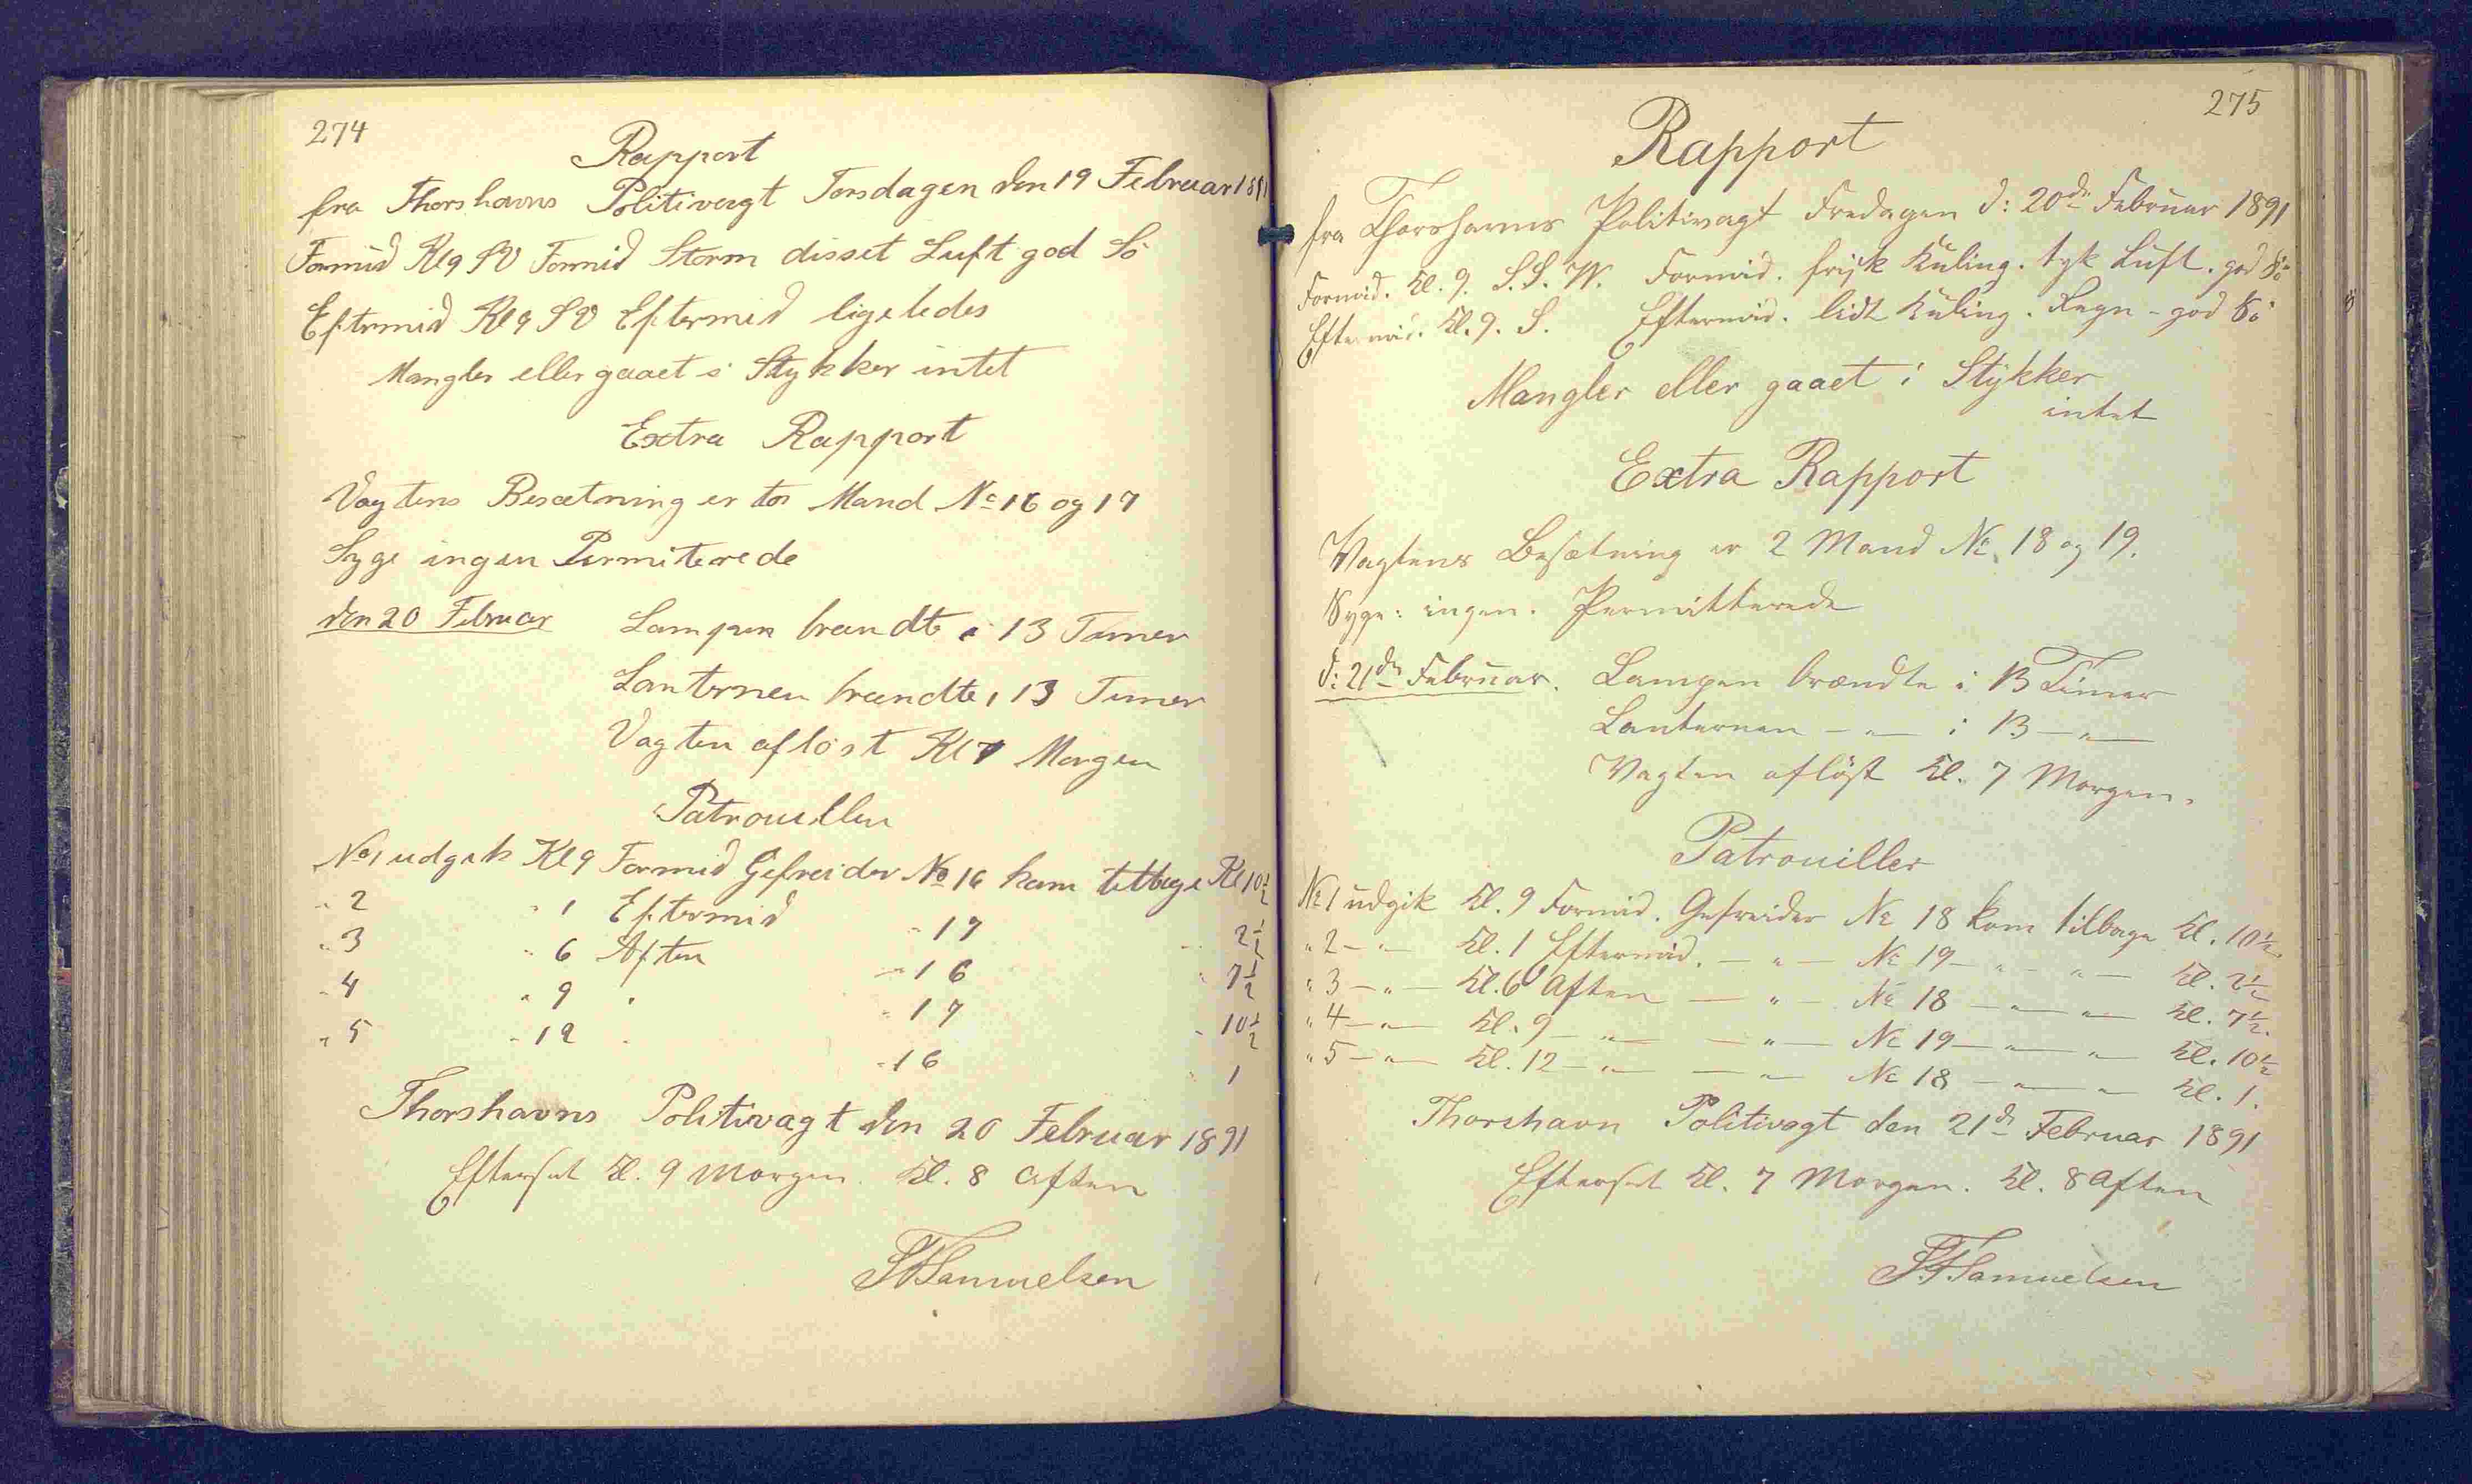 274
Rapport
fra Thorshavns Politivagt Torsdagen den 19 Februar 1891
Formid Kl 9 SV Formid Storm disset Luft god Sö
Eftermid Kl 9 SV Eftermid ligeledes
Mangler eller gaaet i Stykker intet
Extra Rapport
Vagtens Besætning er to Mand No 16 og 17
Syge ingen Permiterede
den 20 Februar Lampen brændte i 13 Timer
Lanternen brændte i 13 Timer
Vagten aflöst Kl 7 Morgen
Patrouillen
No 1 udgik Kl 9 Formid Gefreider No 16 kom tilbage Kl 10½
" 2 " 1 Eftermid " 17 " 2½
" 3 " 6 Aften " 16 " 7½
" 4 " 9 " " 17 " 10½
" 5 " 12 " " 16 " 1
Thorshavns Politivagt den 20 Februar 1891
Efterset Kl. 9 Morgen. Kl. 8 Aften
Samuelsen
275
Rapport
fra Thorshavns Politivagt Fredagen d: 20de Februar 1891
Formid. Kl. 9. S.S.W. Formid. frisk Kuling. tyk Luft. god Sö
Eftermid. Kl. 9. S. Eftermid. lidt Kuling. Regn - god Sö
Mangler eller gaaet i Stykker
intet
Extra Rapport
Vagtens Besætning er 2 Mand No. 18 og 19.
Syge: ingen. Permitterede
d: 21de Februar. Lampen brændte i 13 Timer
Lanternen — " — i 13 — " —
Vagten aflöst Kl. 7 Morgen.
Patrouiller
No 1 udgik Kl. 9 Formid. Gefreider No 18 kom tilbage Kl. 10½.
" 2 — " — Kl. 1 Eftermid. — " — No 19 — " — " — Kl. 2½
" 3 — " — Kl. 6 Aften — " — No 18 — " — " — Kl. 7½.
" 4 — " — Kl. 9 — " — — " — No 19 — " — " — Kl. 10½
" 5 — " — Kl. 12 — " — — " — No 18 — " — " — Kl. 1.
Thorshavn Politivagt den 21de Februar 1891
Efterset Kl. 7 Morgen. Kl. 8 Aften
Samuelsen